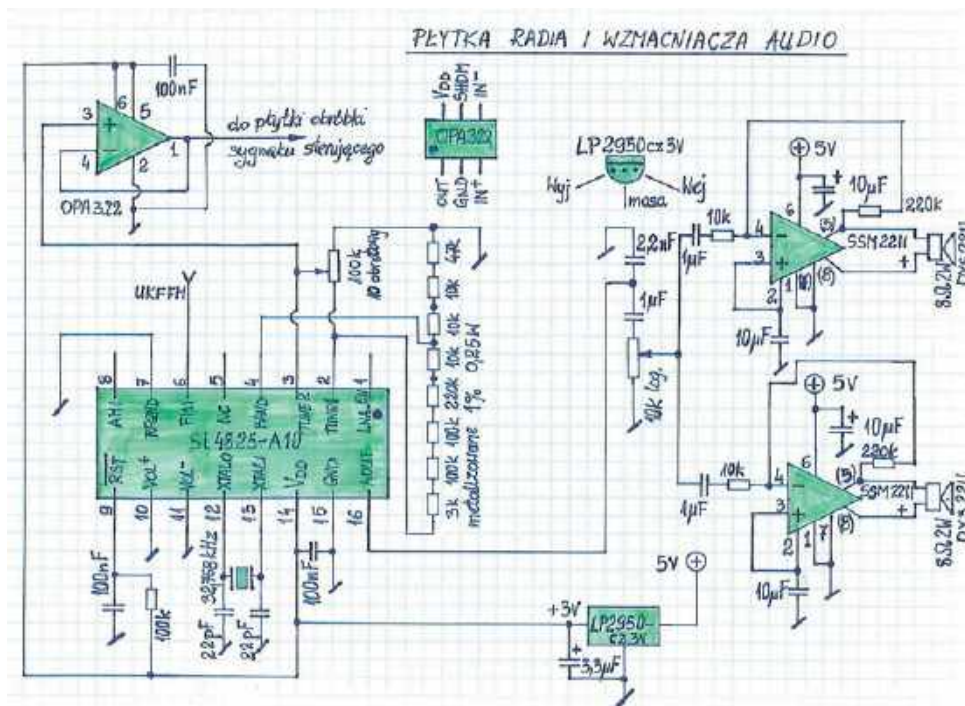 PŁYTKA RADIA I WZMACNIACZA AUDIO
100nF
3
4
6
5
2
1
OPA322
do płytki obróbki
sygnału sterującego
VDD
SHDN
IN-
OPA322
OUT
GND
IN+
LP2950cz3V
Wyj
masa
Wej
100k
10 obrotowy
47k
10k
10k
10k
220k
100k
100k
3k
metalizowane 1% 0,25W
UKFFM
8
7
6
5
4
3
2
1
AMI
RFGND
FMI
NC
BAND
TUNE2
TUNE1
SL4825-A10
RST
VOL+
VOL-
XTALO
XTALI
VDD
GND
AOUT
9
10
11
12
13
14
15
16
100nF
100k
32,768kHz
22pF
22pF
100nF
2,2nF
1µF
10k log.
1µF
10k
5V
10µF
220k
6
4
3
2
1
(5)
(8)
SSM2211
10µF
8Ω2W
1µF
10k
5V
10µF
220k
6
4
3
2
1
7
(5)
(8)
SSM2211
10µF
8Ω2W
5V
+3V
LP2950-
cz3V
3,3µF